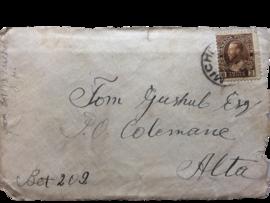 MICH
Tom Gushul Esq
P.O. Colemane
Alta
Box 202